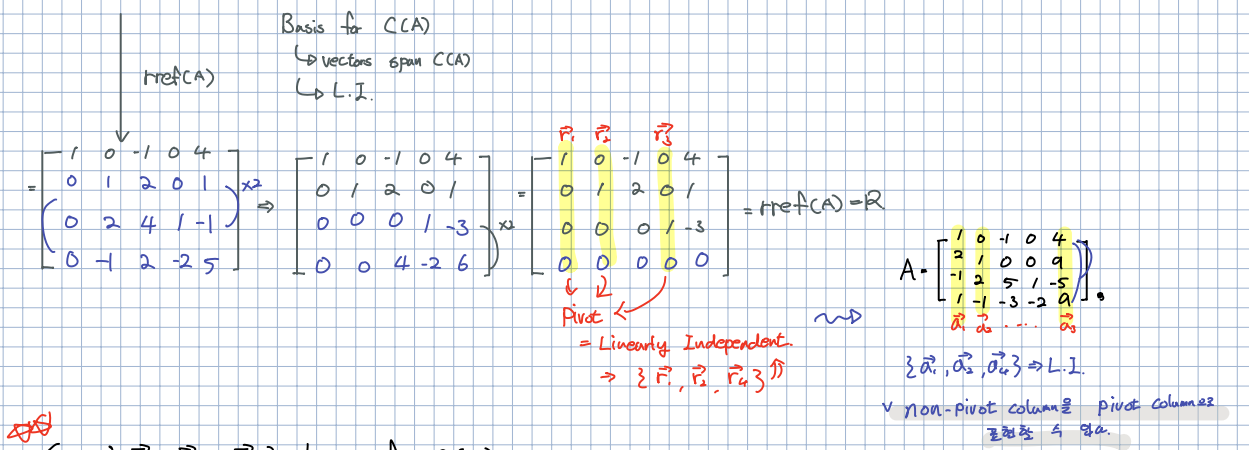 Basis for C(A)
↳ vectors span C(A)
↳ L.I.
rref(A)
= [ 1 0 -1 0 4
0 1 2 0 1
0 2 4 1 -1
0 -1 2 -2 5 ] x2
⇒ [ 1 0 -1 0 4
0 1 2 0 1
0 0 0 1 -3
0 0 4 -2 6 ] x2
r₁ r₂ r₃
= [ 1 0 -1 0 4
0 1 2 0 1
0 0 0 1 -3
0 0 0 0 0 ] = rref(A) = R
Pivot
= Linearly Independent.
⇒ {r₁, r₂, r₄}
A = [ 1 0 -1 0 4
2 1 0 0 9
-1 2 5 1 -5
1 -1 -3 -2 9 ].
a₁ a₂ .... a₅
{a₁, a₂, a₄} ⇒ L.I.
v non-pivot column을 pivot column으로
표현할 수 있다.